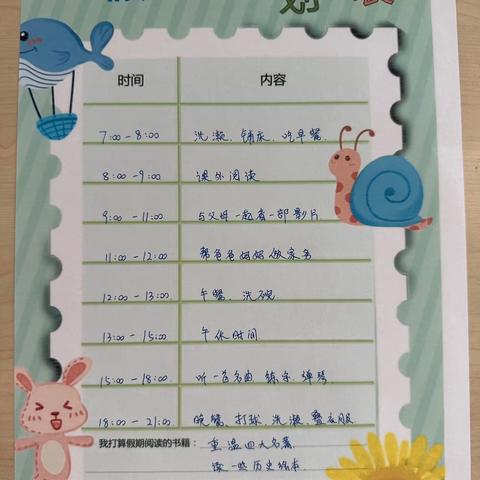 划 表
时间 内容
7:00-8:00 洗漱、铺床、吃早餐
8:00-9:00 课外阅读
9:00-11:00 与父母一起看一部影片
11:00-12:00 帮爸爸妈妈做家务
12:00-13:00 午餐、洗碗
13:00-15:00 午休时间
15:00-18:00 听一首名曲 练字、弹琴
18:00-21:00 晚餐、打球、洗漱、叠衣服
我打算假期阅读的书籍： 重温四大名著
读一些历史绘本